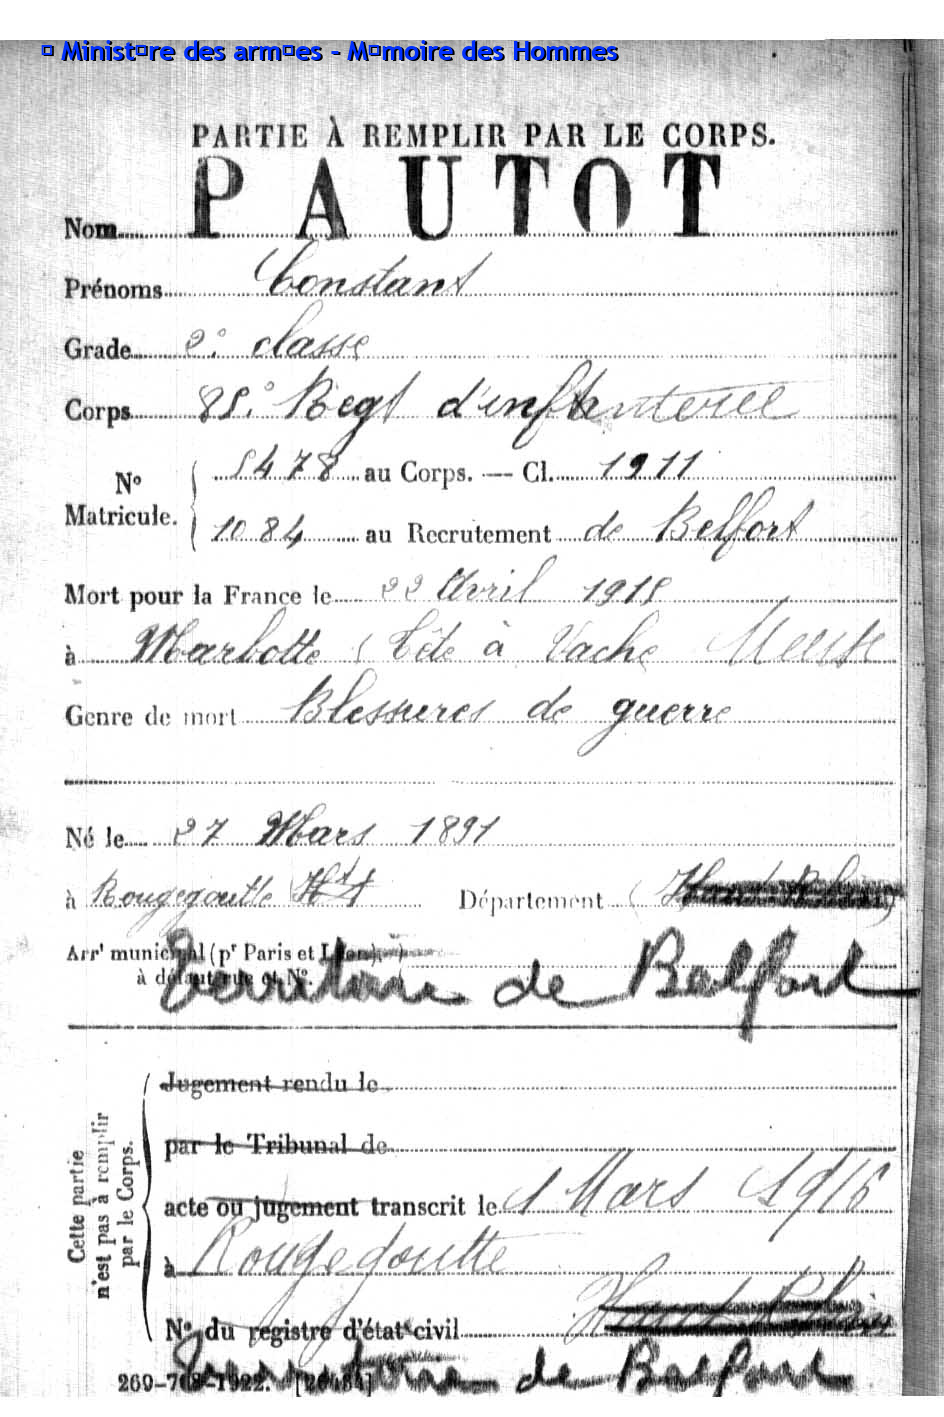 © Ministère des armées - Mémoire des Hommes
PARTIE À REMPLIR PAR LE CORPS.
Nom PAUTOT
Prénoms Constant
Grade 2e classe
Corps 85e Regt d'infanterie
No Matricule. 5478 au Corps. — Cl. 1911
1084 au Recrutement de Belfort
Mort pour la France le 22 Avril 1915
à Marbotte (Tête à Vache Meuse
Genre de mort Blessures de guerre
Né le 27 Mars 1891
à Rougegoutte Département (Haut Rhin)
Arrt municipal (pr Paris et Lyon),
à défaut rue et No.
Territoire de Belfort
Cette partie n'est pas à remplir par le Corps.
Jugement rendu le
par le Tribunal de
acte ou jugement transcrit le 1 Mars 1916
à Rougegoutte
No du registre d'état civil Haut Rhin
Territoire de Belfort
269-708-1922. [26434]